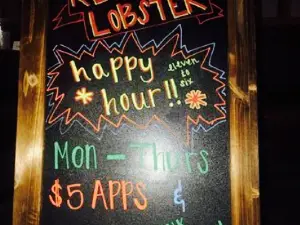 LOBSTER
happy
hour!!
eleven
to
six
Mon - Thurs
$5 APPS &